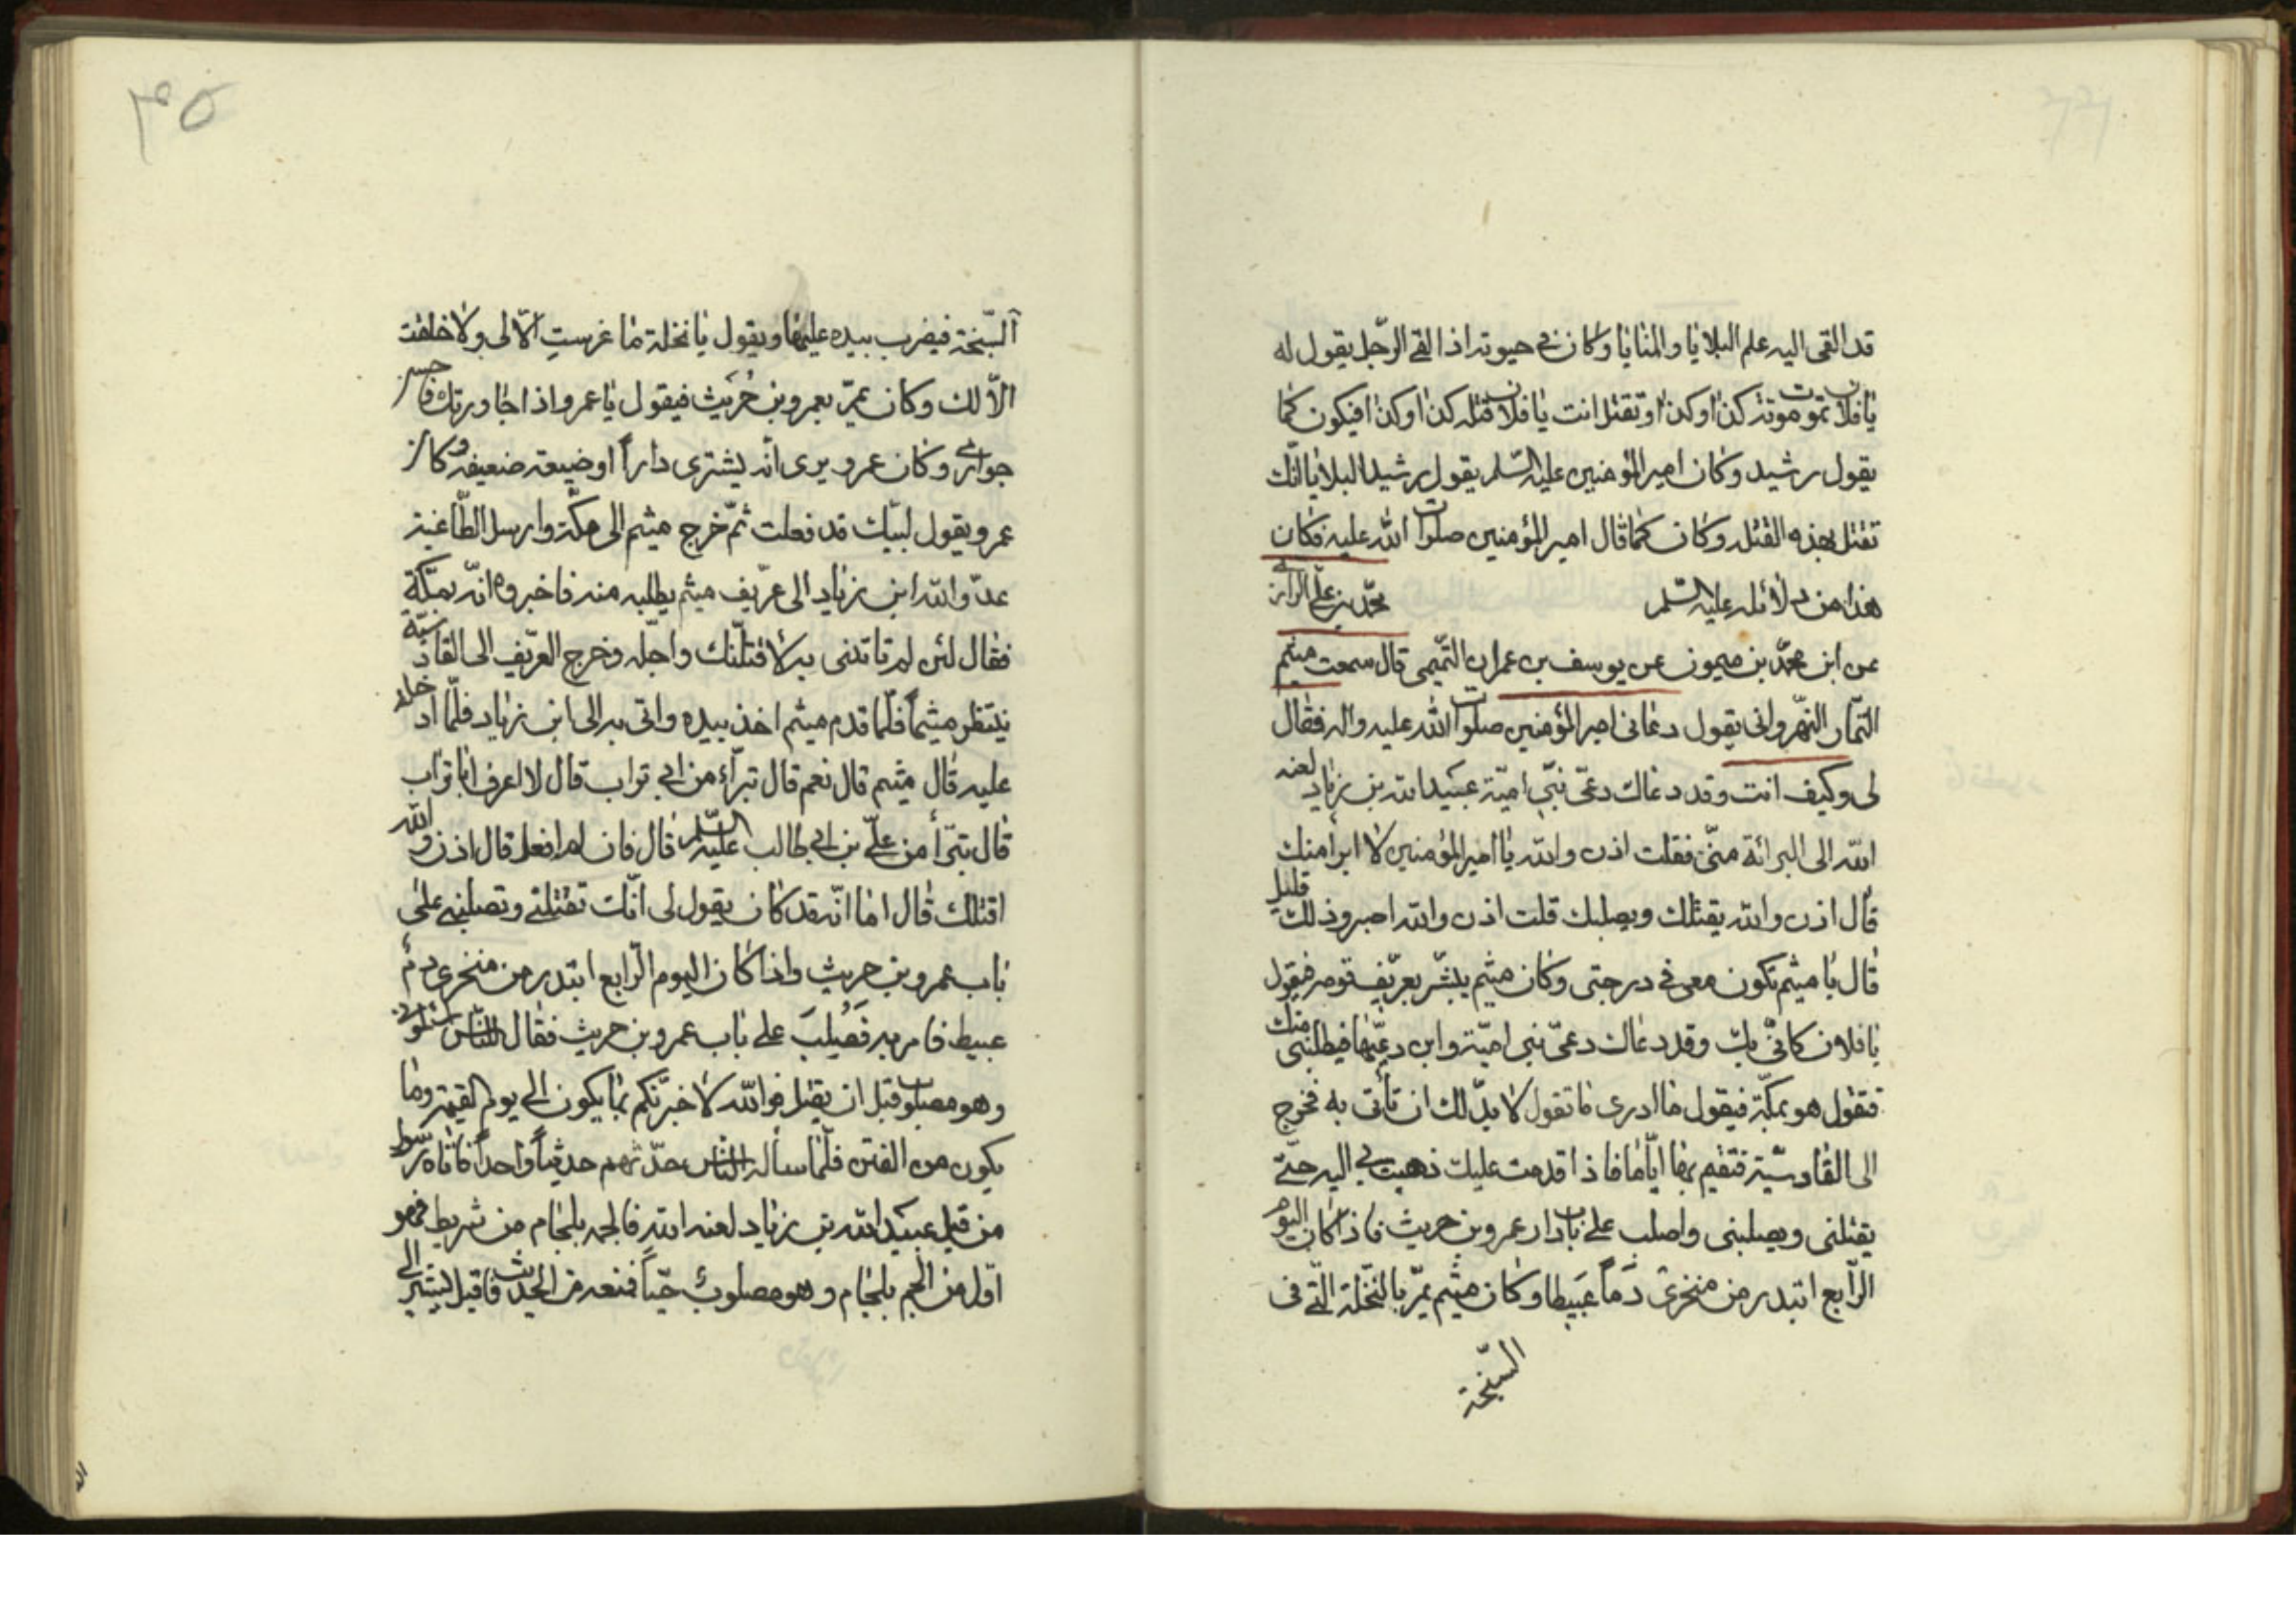 قد القى اليه علم البلايا والمنايا وكان في حيوته اذا لقي الرّجل يقول له
يا فلان تموت موتة كذا وكذا وتقتل انت يا فلان قتله كذا وكذا فيكون كما
يقول رشيد وكان امير المؤمنين عليه السّلم يقول رشيد البلايا انّك
تقتل بهذه القتله وكان كما قال امير المؤمنين صلوات الله عليه فكان
هذا من دلائله عليه السّلم محمّد بن علي الرازي
عن ابن محمّد بن ميمون عن يوسف بن عمران التّميمي قال سمعت ميثم
التّمار النّهرواني يقول دعاني امير المؤمنين صلوات الله عليه واله فقال
لي وكيف انت وقد دعاك دعيّ بني اميّة عبيد الله بن زياد لعنه
الله الى البرائة منّي فقلت اذن والله يا امير المؤمنين لا ابرأ منك
قال اذن والله يقتلك ويصلبك قلت اذن والله اصبر وذلك قليل
قال يا ميثم تكون معي في درجتي وكان ميثم يبشّر بعريّف قومه فيقول
يا فلان كانّي بك وقد دعاك دعيّ بني اميّة وابن دعيّها فيطلبني منك
فتقول هو بمكّة فيقول ما ادري ما تقول لا بدّ لك ان تأتي به فخرج
الى القادسيّة فتقيم بها ايّاما فاذا قدمت عليك ذهبت بي اليه حتّى
يقتلني ويصلبني واصلب على باب دار عمرو بن حريث فاذا كان اليوم
الرّابع ابتدر من منخري دَماً عَبيطا وكان ميثم يمرّ بالنّخلة الّتي في
السّبخة
٤٥
السّبخة فيضرب بيده عليها ويقول يا نخلة ما غرستِ الّا لي ولا خلقت
الّا لك وكان يمرّ بعمرو بن حُرَيث فيقول يا عمرو اذا جاورتك فاحسن
جواري وكان عمرو يرى انّه يشتري داراً او ضيعة ضعيفه وكان
عمرو يقول لبّيك قد فعلت ثمّ خرج ميثم الى مكّة وارسل الطّاغية
عدوّ الله ابن زياد الى عريّف ميثم يطلبه منه فاخبروه انّه بمكّة
فقال لئن لم تاتني به لاقتلنّك واجّله وخرج العريّف الى القادسيّة
ينتظر ميثماً فلمّا قدم ميثم اخذ بيده واتى به الى ابن زياد فلمّا ادخله
عليه قال ميثم قال نعم قال تبرّاء من ابي تراب قال لا اعرف ابا تراب
قال تبرّأ من عليّ بن ابي طالب عليه السّلم قال فان لم افعل قال اذن والله
اقتلك قال اما انّه قد كان يقول لي انّك تقتلني وتصلبني على
باب عمرو بن حريث واذا كان اليوم الرّابع ابتدر من منخري دم
عبيط فامر به فَصُلِبَ على باب عمرو بن حريث فقال للنّاس سلوني
وهو مصلوب قبل ان يقتل فوالله لاخبرنّكم بما يكون الى يوم القيمة وما
يكون من الفتن فلمّا سأله النّاس حدّثهم حديثاً واحداً فاتاه
من قبل عبيد الله بن زياد لعنه الله فالجمه بلجام من شريط فهو
اوّل من الجم بلجام وهو مصلوب حيّاً فمنعه من الحديث فاقبل يشير الى